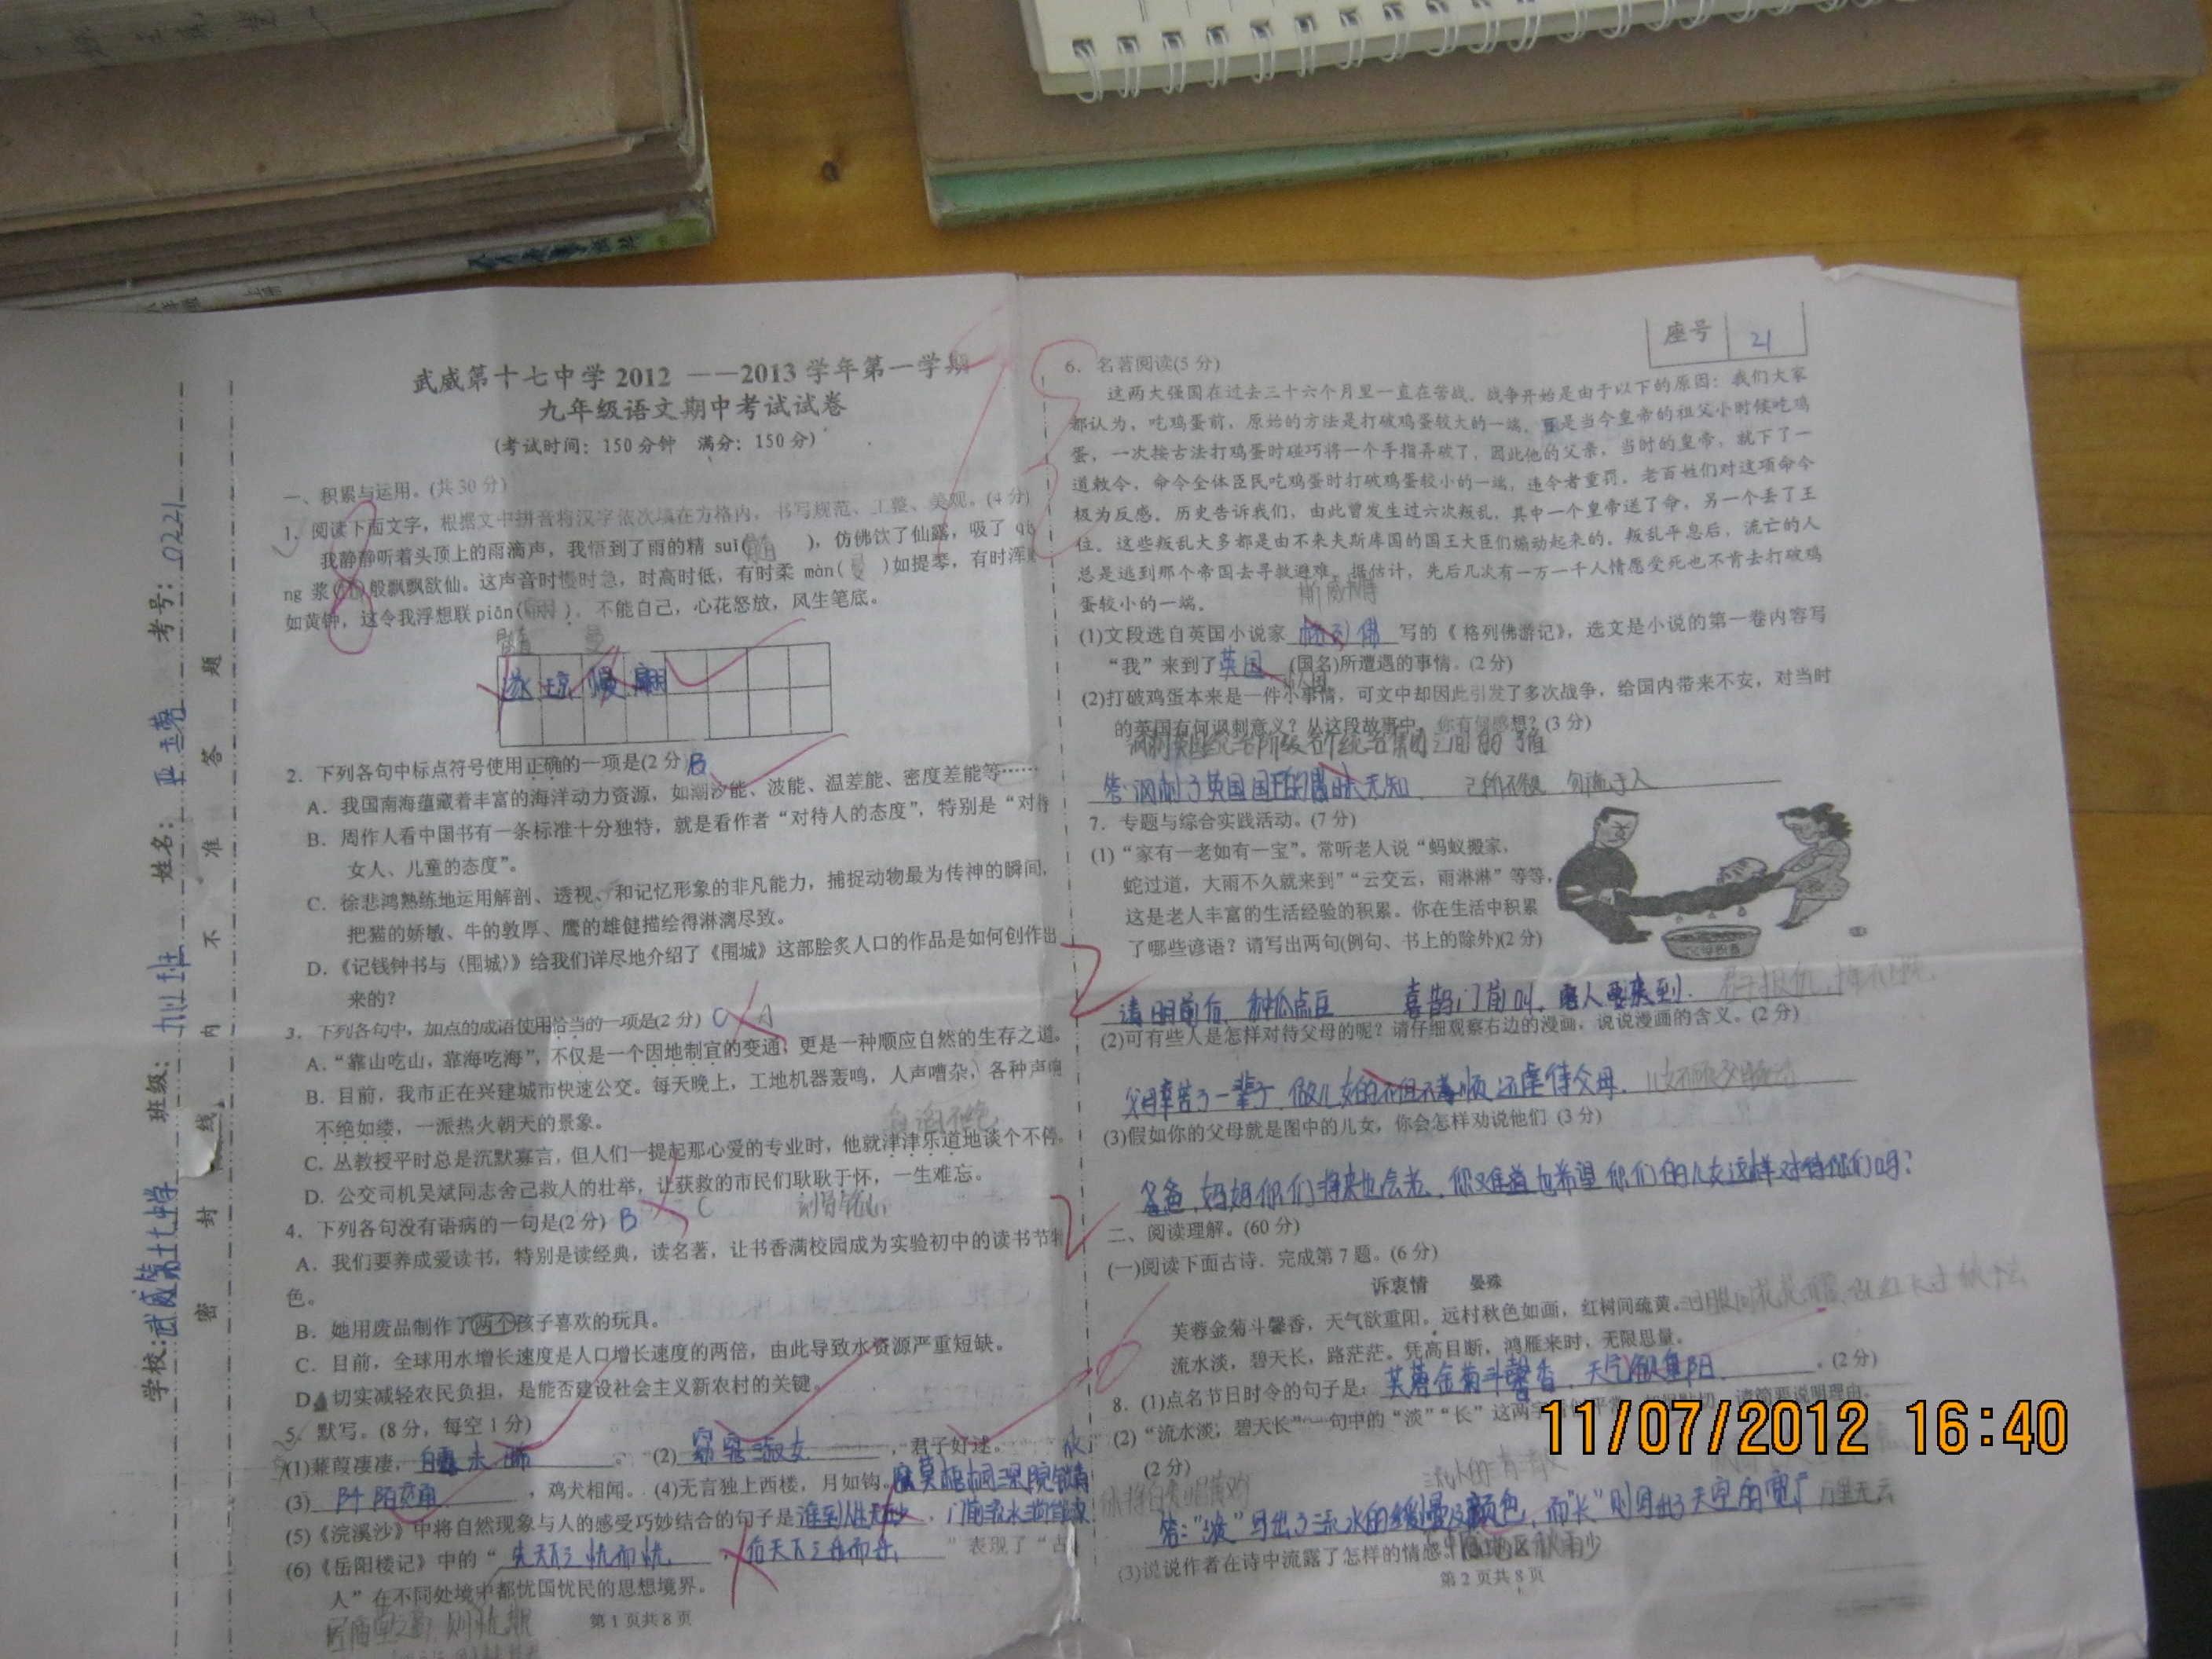 武威第十七中学 2012 ——2013 学年第一学期
九年级语文期中考试试卷
(考试时间：150 分钟 满分：150 分)
一、积累与运用。(共 30 分)
1. 阅读下面文字，根据文中拼音将汉字依次填在方格内，书写规范、工整、美观。(4 分)
我静静听着头顶上的雨滴声，我悟到了雨的精 suǐ( )，仿佛饮了仙露，吸了 qi
ng 浆( )般飘飘欲仙。这声音时慢时急，时高时低，有时柔 màn( )如提琴，有时浑
如黄钟，这令我浮想联 piān( )。不能自己，心花怒放，风生笔底。
琼 慢 翩
2. 下列各句中标点符号使用正确的一项是(2 分) B
A. 我国南海蕴藏着丰富的海洋动力资源，如潮汐能、波能、温差能、密度差能等……
B. 周作人看中国书有一条标准十分独特，就是看作者“对待人的态度”，特别是“对待
女人、儿童的态度”。
C. 徐悲鸿熟练地运用解剖、透视、和记忆形象的非凡能力，捕捉动物最为传神的瞬间，
把猫的娇敏、牛的敦厚、鹰的雄健描绘得淋漓尽致。
D.《记钱钟书与〈围城〉》给我们详尽地介绍了《围城》这部脍炙人口的作品是如何创作出
来的？
3. 下列各句中，加点的成语使用恰当的一项是(2 分) C A
A.“靠山吃山，靠海吃海”，不仅是一个因地制宜的变通，更是一种顺应自然的生存之道。
B. 目前，我市正在兴建城市快速公交。每天晚上，工地机器轰鸣，人声嘈杂，各种声响
不绝如缕，一派热火朝天的景象。
C. 丛教授平时总是沉默寡言，但人们一提起那心爱的专业时，他就津津乐道地谈个不停。
D. 公交司机吴斌同志舍己救人的壮举，让获救的市民们耿耿于怀，一生难忘。
4. 下列各句没有语病的一句是(2 分) B C
A. 我们要养成爱读书，特别是读经典，读名著，让书香满校园成为实验初中的读书节特
色。
B. 她用废品制作了两个孩子喜欢的玩具。
C. 目前，全球用水增长速度是人口增长速度的两倍，由此导致水资源严重短缺。
D. 切实减轻农民负担，是能否建设社会主义新农村的关键。
5. 默写。(8 分，每空 1 分)
(1)蒹葭凄凄，白露未晞。 (2) 窈窕淑女，君子好逑。
(3) 阡陌交通，鸡犬相闻。(4)无言独上西楼，月如钩，寂寞梧桐深院锁清秋
(5)《浣溪沙》中将自然现象与人的感受巧妙结合的句子是
(6)《岳阳楼记》中的“先天下之忧而忧，后天下之 ”表现了“古
人”在不同处境中都忧国忧民的思想境界。
第 1 页共 8 页
学校：武威第十七中学 班级： 姓名： 考号：0221
密 封 线 内 不 准 答 题
座号 21
6. 名著阅读(5 分)
这两大强国在过去三十六个月里一直在苦战。战争开始是由于以下的原因：我们大家
都认为，吃鸡蛋前，原始的方法是打破鸡蛋较大的一端。可是当今皇帝的祖父小时候吃鸡
蛋，一次按古法打鸡蛋时碰巧将一个手指弄破了，因此他的父亲，当时的皇帝，就下了一
道敕令，命令全体臣民吃鸡蛋时打破鸡蛋较小的一端，违令者重罚。老百姓们对这项命令
极为反感。历史告诉我们，由此曾发生过六次叛乱，其中一个皇帝送了命，另一个丢了王
位。这些叛乱大多都是由不来夫斯库国的国王大臣们煽动起来的。叛乱平息后，流亡的人
总是逃到那个帝国去寻救避难。据估计，先后几次有一万一千人情愿受死也不肯去打破鸡
蛋较小的一端。
(1)文段选自英国小说家 格列佛 写的《格列佛游记》，选文是小说的第一卷内容写
“我”来到了英国 (国名)所遭遇的事情。(2 分)
(2)打破鸡蛋本来是一件小事情，可文中却因此引发了多次战争，给国内带来不安，对当时
的英国有何讽刺意义？从这段故事中，你有何感想？(3 分)
答：讽刺了英国国王的愚昧无知 己所不欲 勿施于人
7. 专题与综合实践活动。(7 分)
(1)“家有一老如有一宝”。常听老人说“蚂蚁搬家，
蛇过道，大雨不久就来到”“云交云，雨淋淋”等等，
这是老人丰富的生活经验的积累。你在生活中积累
了哪些谚语？请写出两句(例句、书上的除外)(2 分)
清明前后 种瓜点豆 喜鹊门前叫，客人要来到．
(2)可有些人是怎样对待父母的呢？请仔细观察右边的漫画，说说漫画的含义。(2 分)
父母辛苦了一辈子．做儿女的不但不孝顺还虐待父母．
(3)假如你的父母就是图中的儿女，你会怎样劝说他们 (3 分)
爸爸，妈妈你们将来也会老．你难道也希望你们的儿女这样对待你们吗？
二、阅读理解。(60 分)
(一)阅读下面古诗．完成第 7 题。(6 分)
诉衷情 晏殊
芙蓉金菊斗馨香，天气欲重阳。远村秋色如画，红树间疏黄。
流水淡，碧天长，路茫茫。凭高目断，鸿雁来时，无限思量。
8. (1)点名节日时令的句子是：芙蓉金菊斗馨香，天气欲重阳．。(2 分)
(2)“流水淡，碧天长”一句中的“淡”“长”这两字
(2 分)
答：“淡”写出了流水的缓慢及颜色，而“长”则写出了天空的宽广 万里无云
(3)说说作者在诗中流露了怎样的情感。
第 2 页共 8 页
11/07/2012 16:40